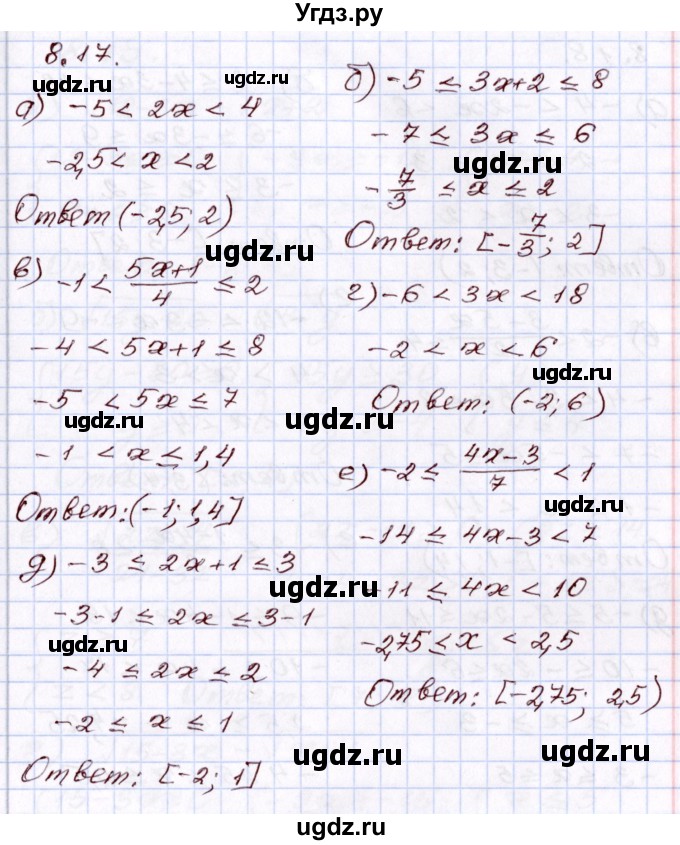 Угдз.ру
8.17.
а) -5 < 2x < 4
-2,5 < x < 2
Ответ (-2,5; 2)
в) -1 < \frac{5x+1}{4} ≤ 2
-4 < 5x+1 ≤ 8
-5 < 5x ≤ 7
-1 < x ≤ 1,4
Ответ: (-1; 1,4]
д) -3 ≤ 2x+1 ≤ 3
-3-1 ≤ 2x ≤ 3-1
-4 ≤ 2x ≤ 2
-2 ≤ x ≤ 1
Ответ: [-2; 1]
б) -5 ≤ 3x+2 ≤ 8
-7 ≤ 3x ≤ 6
-\frac{7}{3} ≤ x ≤ 2
Ответ: [-\frac{7}{3}; 2]
г) -6 < 3x < 18
-2 < x < 6
Ответ: (-2; 6)
е) -2 ≤ \frac{4x-3}{7} < 1
-14 ≤ 4x-3 < 7
-11 ≤ 4x < 10
-2,75 ≤ x < 2,5
Ответ: [-2,75; 2,5)
ugdz.ru
ugdz.ru
ugdz.ru
ugdz.ru
ugdz.ru
ugdz.ru
ugdz.ru
ugdz.ru
ugdz.ru
ugdz.ru
ugdz.ru
ugdz.ru
ugdz.ru
ugdz.ru